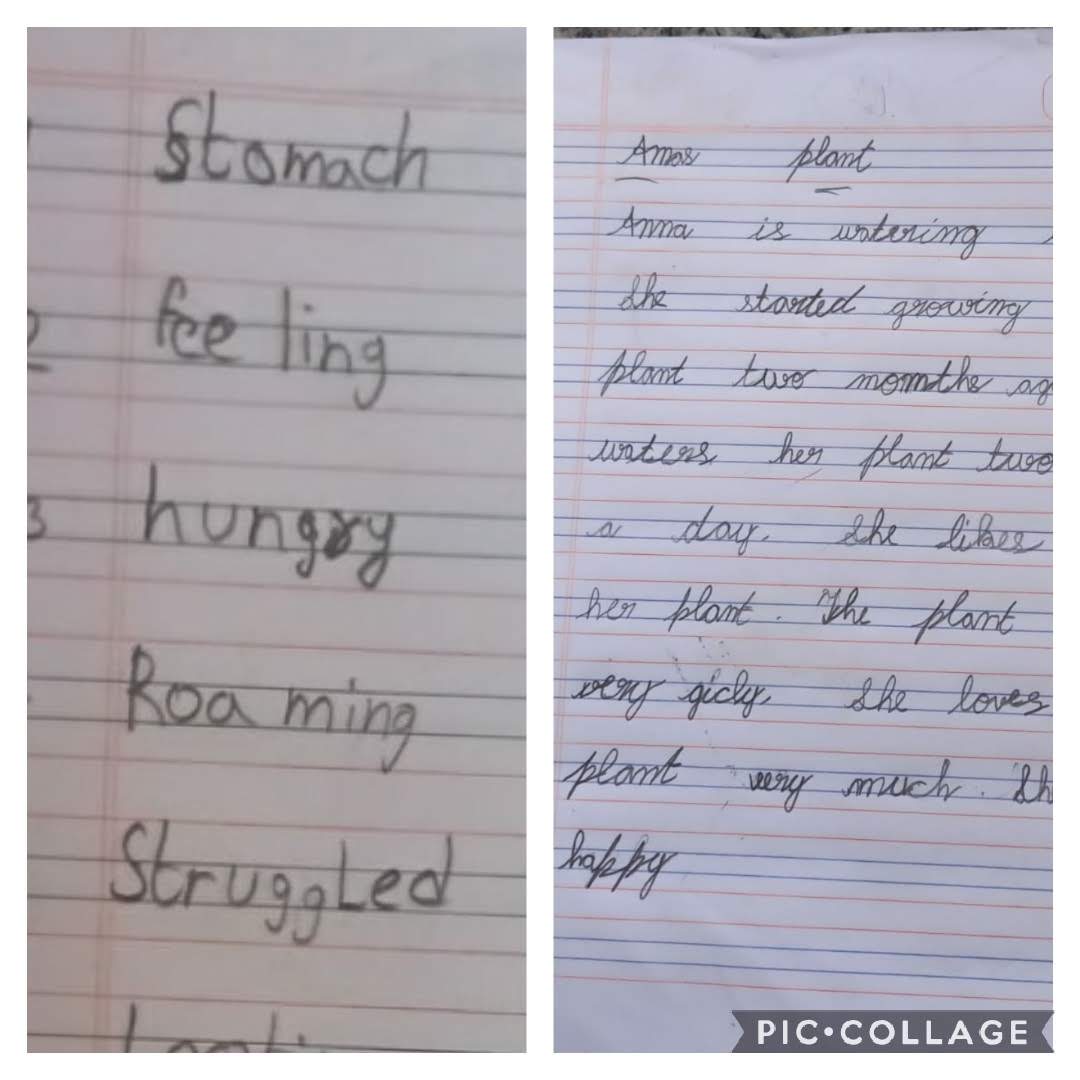 Stomach
2 feeling
3 hungry
Roaming
Struggled
Amas plant
Anna is watering
She started growing
plant two monthe ag
waters her plant two
a day. She likes
her plant. The plant
very gicly. She loves
plant very much. Sh
happy
PIC•COLLAGE